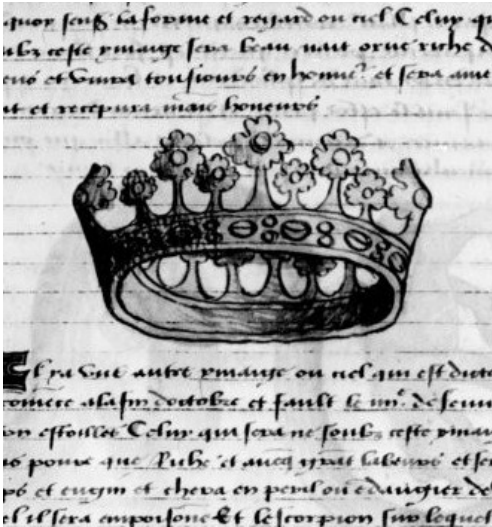 quoy sens sa forme et regard ou ciel Celuy qu
ubz ceste ymaige sera beau riche d
et vivra tousiours en honne^r et sera ame
ut et recepvra mais honeurs
Il ya vne autre ymaige ou ciel qui est dicte
comece alafin doctobre et fault le de
on estoilles Celuy qui sera ne soubz ceste ymai
pouvre que Riche et labeurs et se
ps et engin et en peril ou edaugier de
el il sera empoisone Et le scorpion sur lequel